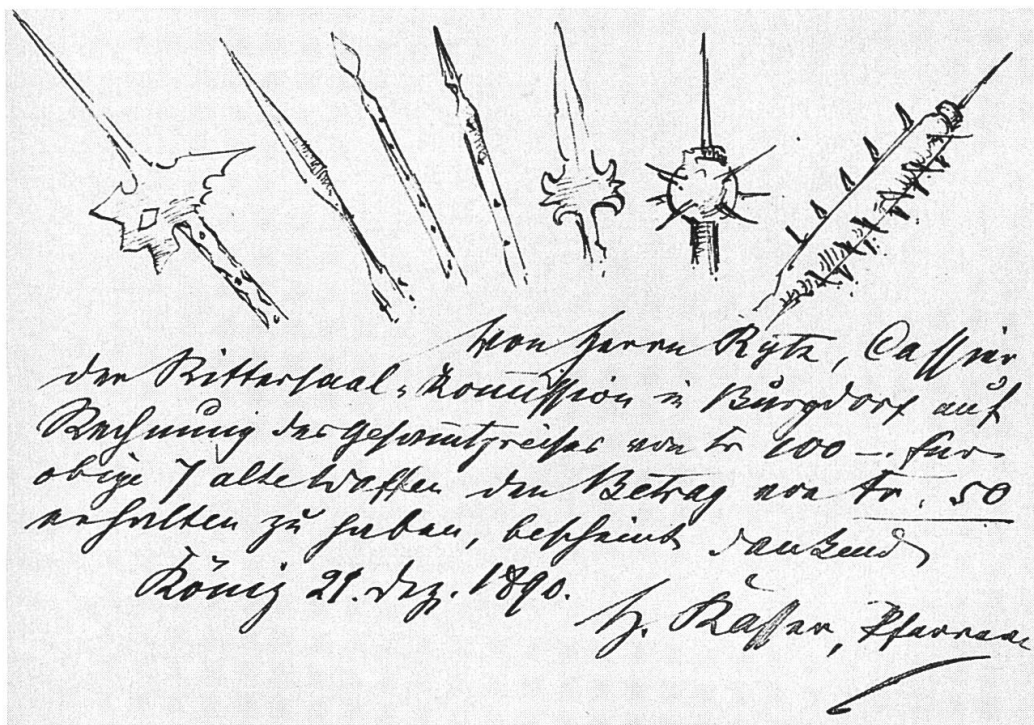 Von Herrn Rytz, Cassier
der Rittersaal-Komission in Burgdorf auf
Rechnung des Gesamtpreises von fr 100 –. für
obige 7 alte Waffen den Betrag von fr. 50
erhalten zu haben, bescheint dankend
Köniz 21. Dez. 1890.
H. Kasser, Pfarrer